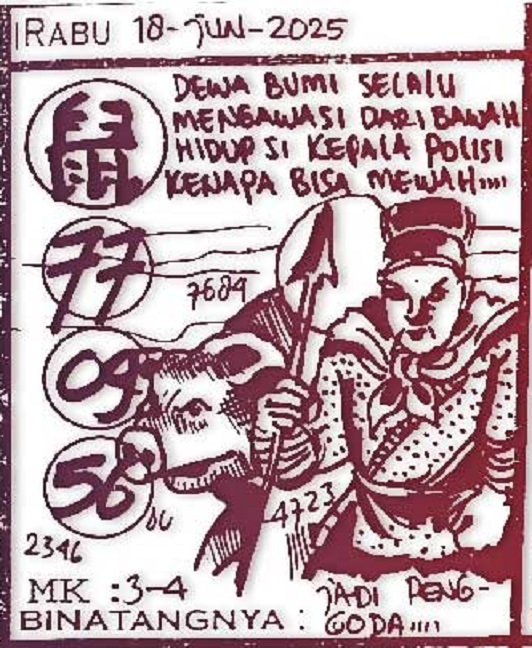 RABU 18-JUN-2025
DEWA BUMI SELALU
MENGAWASI DARI BAWAH
HIDUP SI KEPALA POLISI
KENAPA BISA MEWAH....
鼠
77
7689
09
56
06
4723
2346
MK :3-4
BINATANGNYA :
JADI PENG-
GODA....